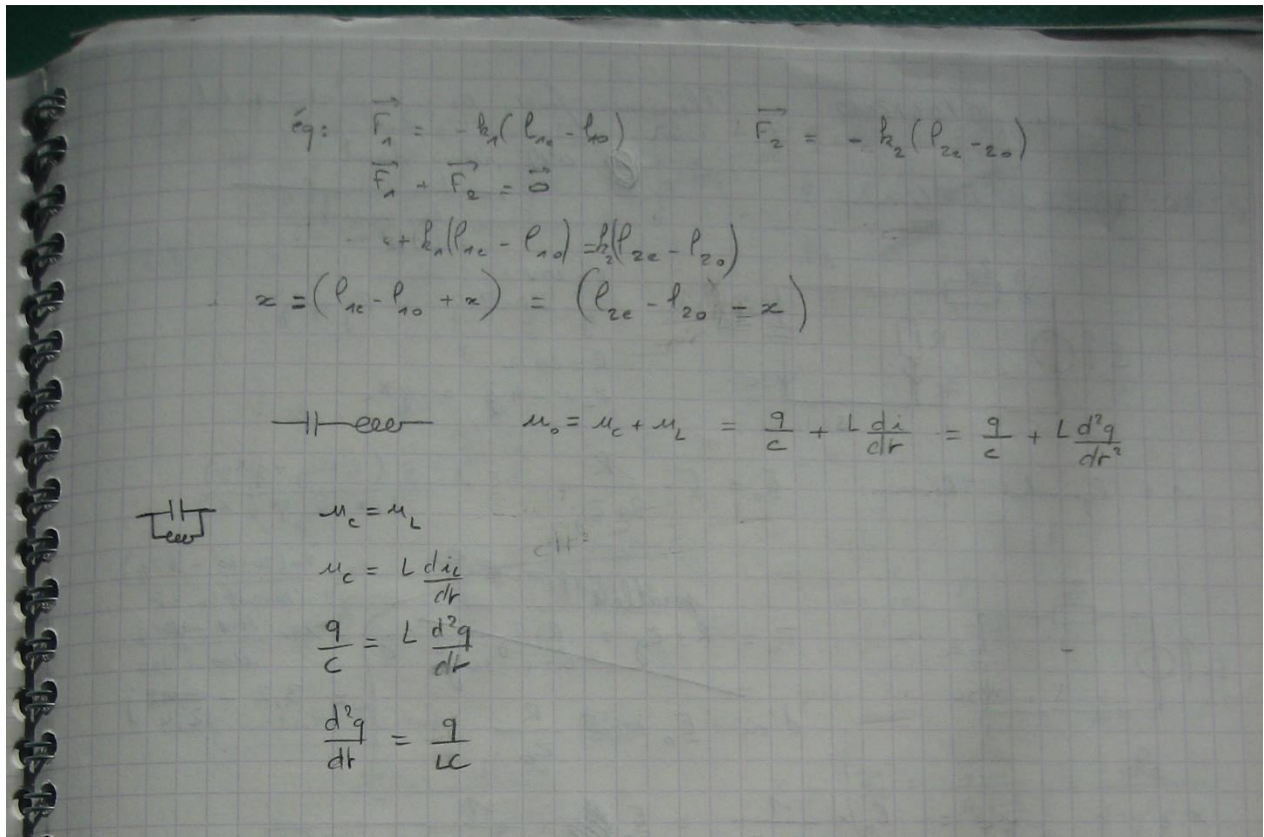 éq: F₁⃗ = -k₁(l₁ₑ - l₁₀) F₂⃗ = - k₂(l₂ₑ - ₂₀)
F₁⃗ + F₂⃗ = 0⃗
+ k₁(l₁ₑ - l₁₀) = k₂(l₂ₑ - l₂₀)
x = (l₁ₑ - l₁₀ + x) = (l₂ₑ - l₂₀ - x)
u₀ = u_c + u_L = q/c + L di/dt = q/c + L d²q/dt²
u_c = u_L
u_c = L di_L/dt
q/c = L d²q/dt
d²q/dt = q/LC